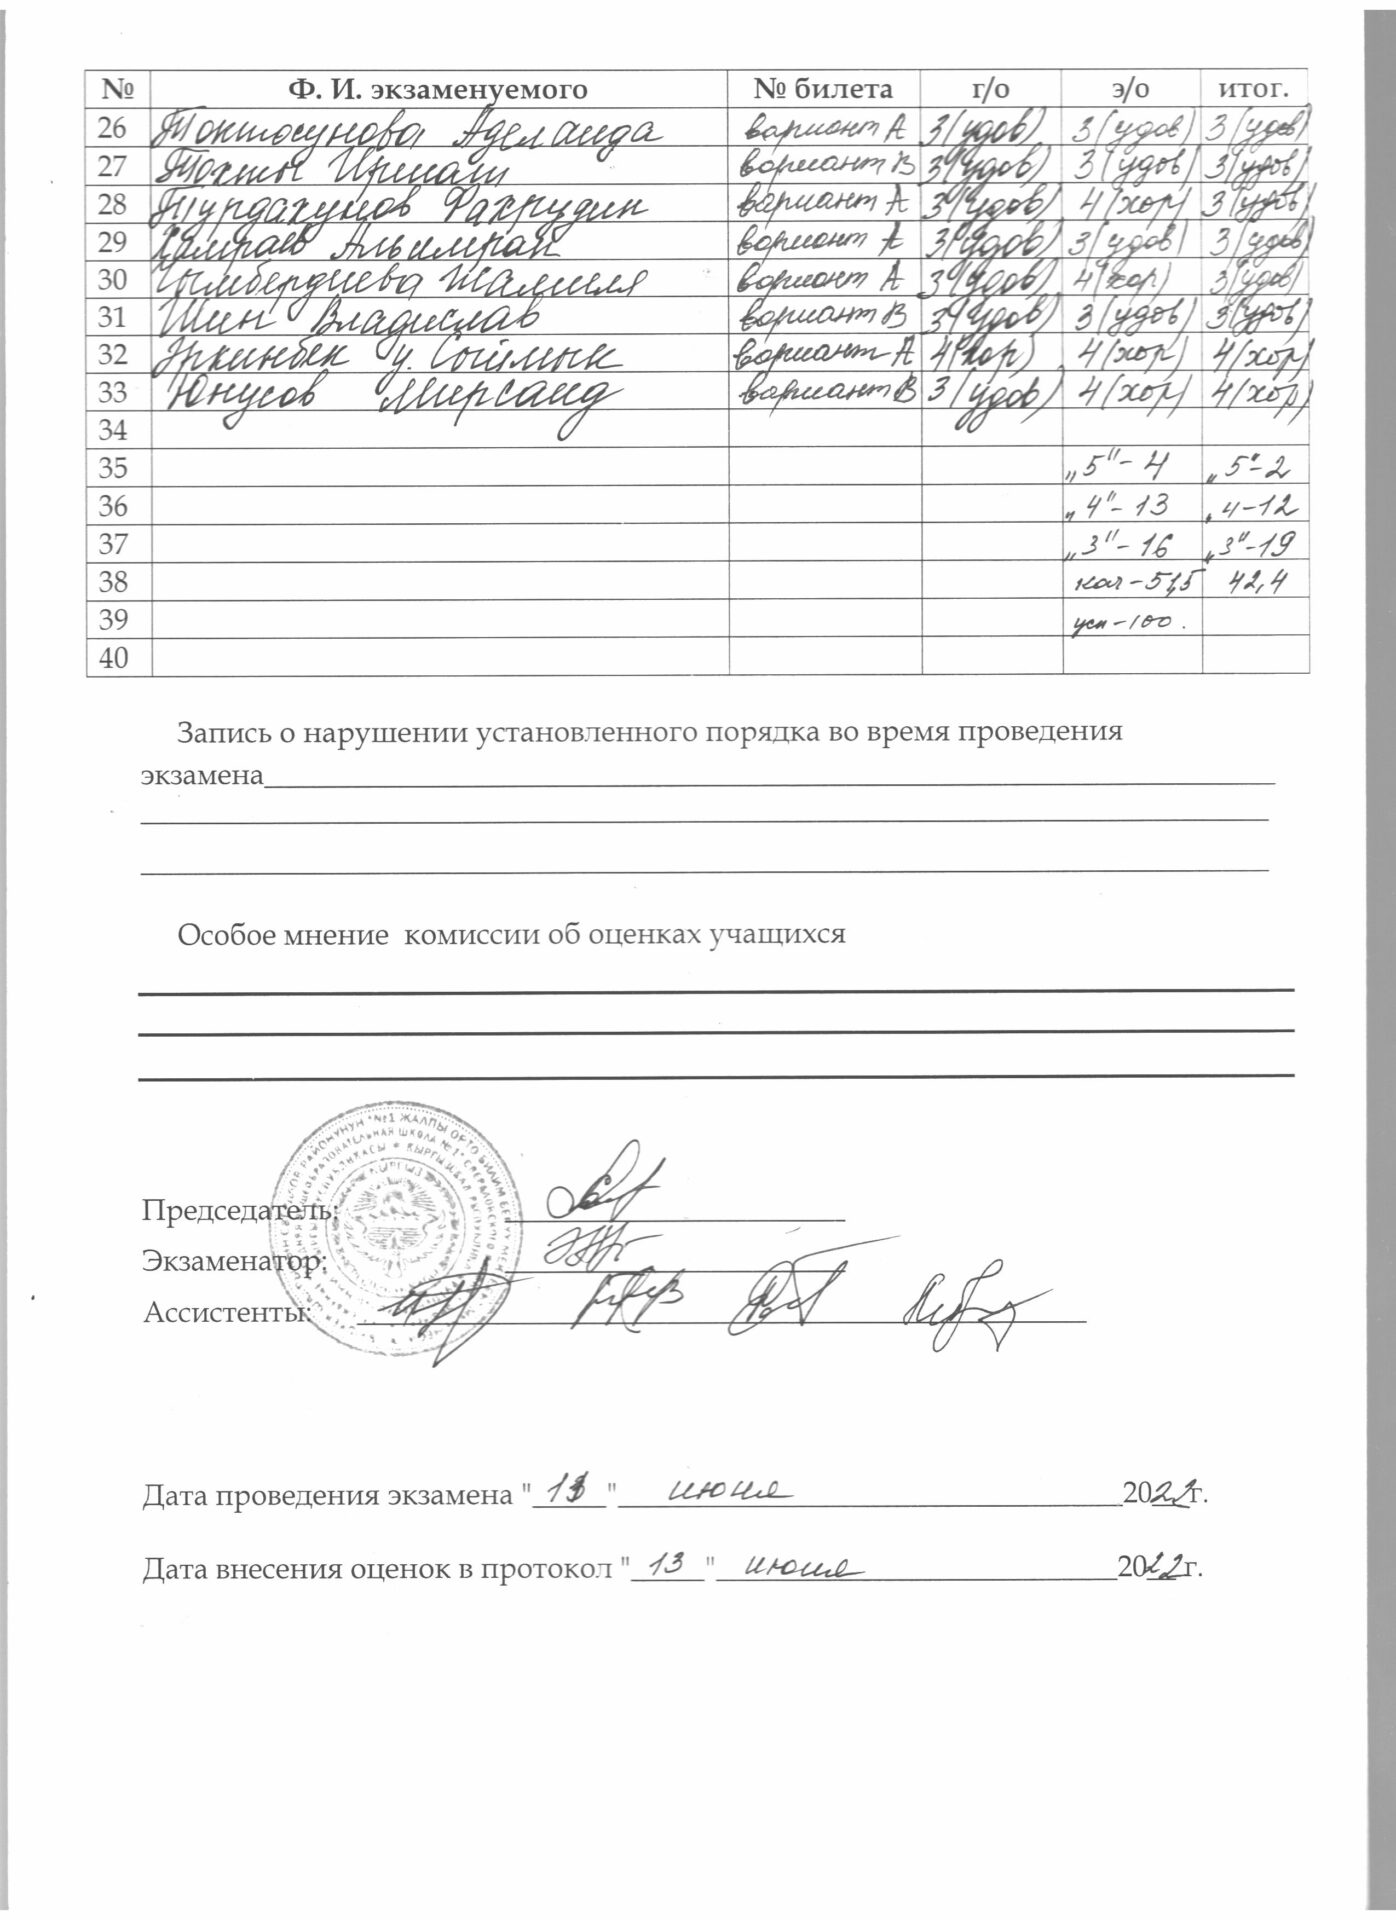 № Ф. И. экзаменуемого № билета г/о э/о итог.
26 Токтосунова Аделаида вариант А 3 (удов) 3 (удов) 3 (удов)
27 Тохты вариант В 3 (удов) 3 (удов) 3 (удов)
28 Турдахунов Фахрудин вариант А 3 (удов) 4 (хор) 3 (удов)
29 Хамраев Альимран вариант А 3 (удов) 3 (удов) 3 (удов)
30 Чымбердиева Жамиля вариант А 3 (удов) 4 (хор) 3 (удов)
31 Шин Владислав вариант В 3 (удов) 3 (удов) 3 (удов)
32 Эркинбек у. Сыймык вариант А 4 (хор) 4 (хор) 4 (хор)
33 Юнусов Мирсаид вариант В 3 (удов) 4 (хор) 4 (хор)
34
35 „5" - 4 „5" - 2
36 „4" - 13 „4 - 12
37 „3" - 16 „3" - 19
38 кач - 51,5 42,4
39 усп - 100.
40
Запись о нарушении установленного порядка во время проведения
экзамена
Особое мнение комиссии об оценках учащихся
Председатель:
Экзаменатор:
Ассистенты:
Дата проведения экзамена "13" июня 2022г.
Дата внесения оценок в протокол "13" июня 2022г.